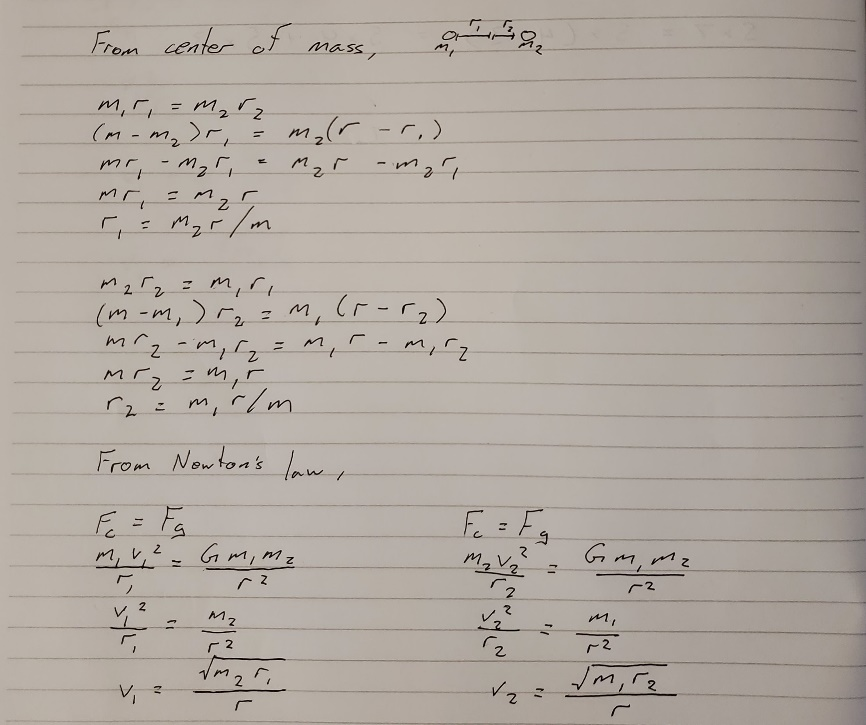 From center of mass, m₁ r₁ r₂ m₂
m₁r₁ = m₂r₂
(m - m₂)r₁ = m₂(r - r₁)
mr₁ - m₂r₁ = m₂r - m₂r₁
mr₁ = m₂r
r₁ = m₂r/m
m₂r₂ = m₁r₁
(m - m₁)r₂ = m₁(r - r₂)
mr₂ - m₁r₂ = m₁r - m₁r₂
mr₂ = m₁r
r₂ = m₁r/m
From Newton's law,
F_c = F_g F_c = F_g
m₁v₁²/r₁ = Gm₁m₂/r² m₂v₂²/r₂ = Gm₁m₂/r²
v₁²/r₁ = m₂/r² v₂²/r₂ = m₁/r²
v₁ = √(m₂r₁)/r v₂ = √(m₁r₂)/r